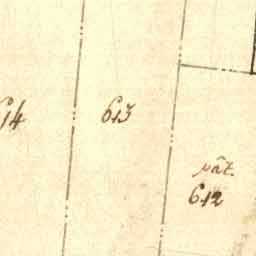 614
613
pât.
612